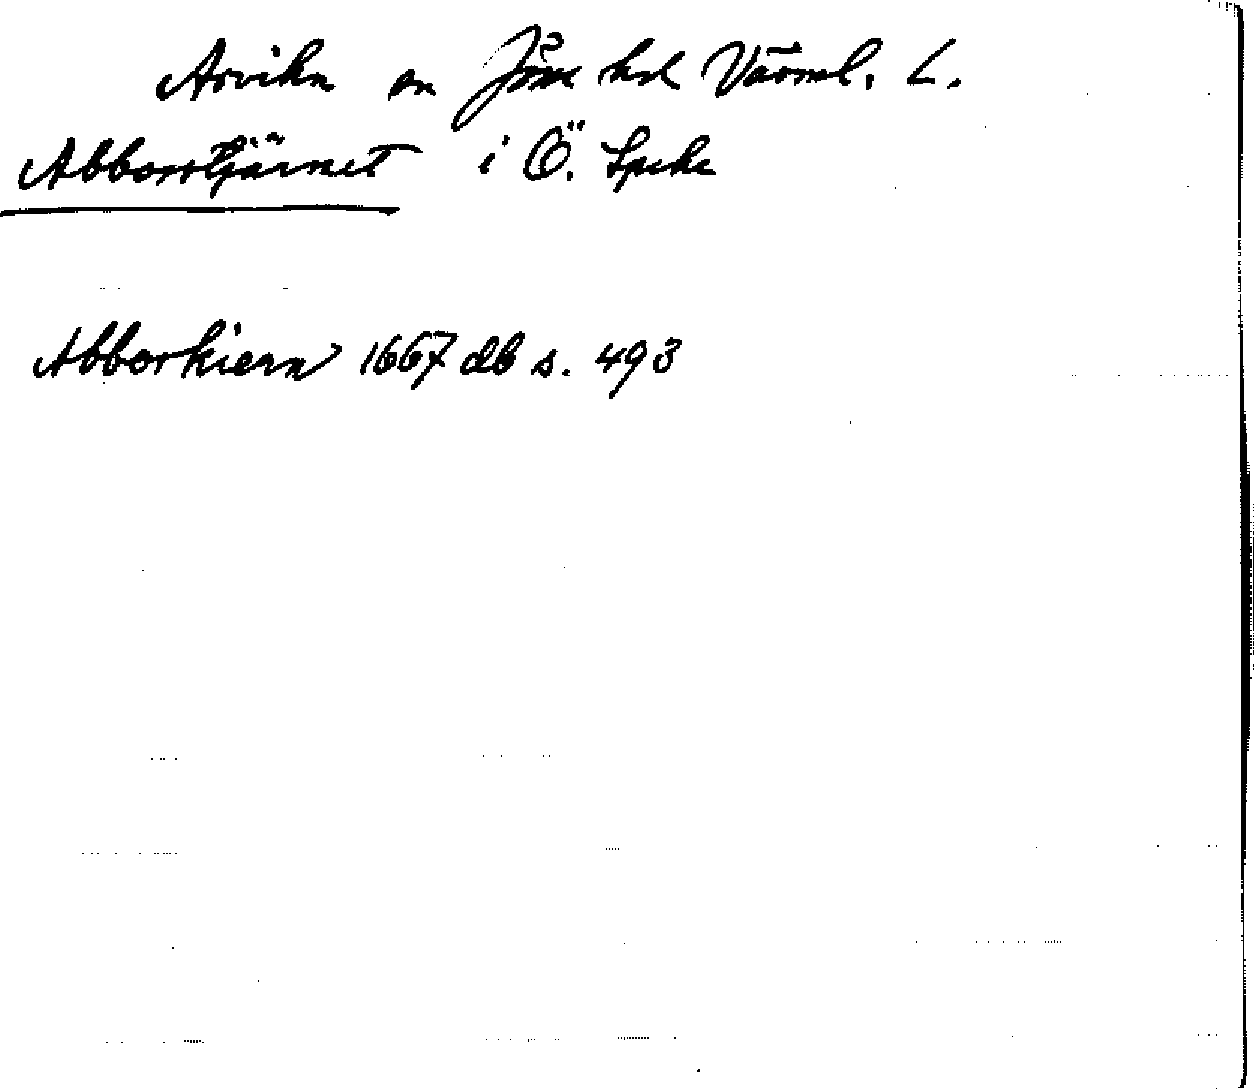 Arvika sn Jösse hd Värml. L.
Abborrtjärnet i Ö. Speke
Abborkiern 1667 db s. 493